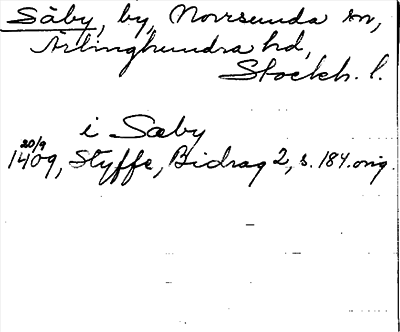 Säby, by, Norrsunda sn,
Ärlinghundra hd,
Stockh. l.
i Sæby
20/9
1409, Styffe, Bidrag 2, s. 184. orig.